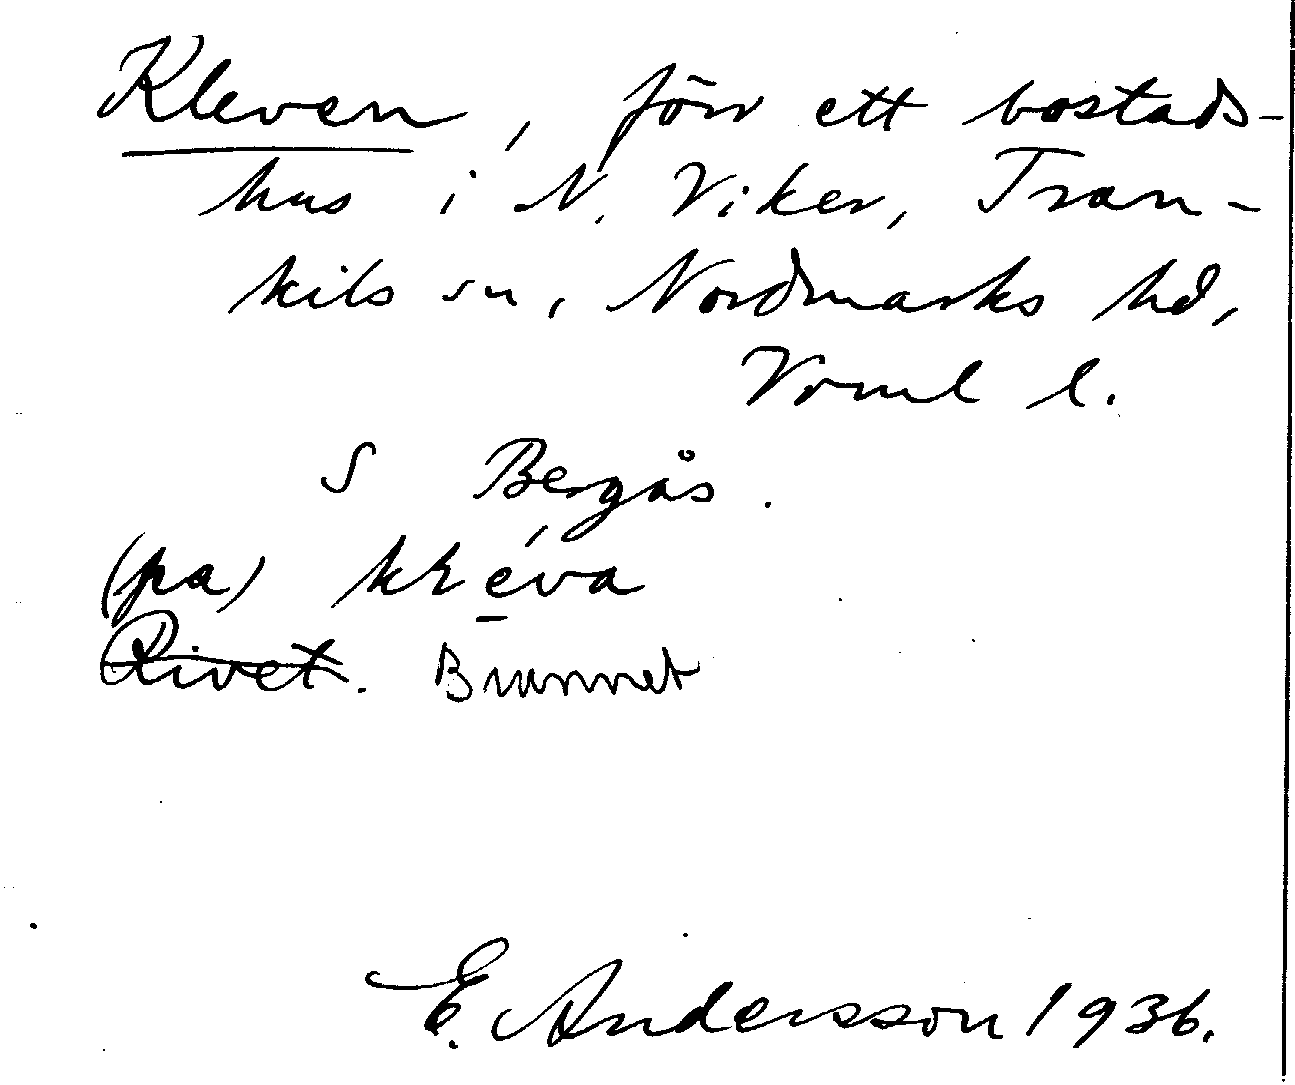 Kleven, förr ett bostads-
hus i N. Viker, Tran-
kils sn, Nordmarks hd,
Vrml l.
S Bergås.
(pa)
Rivet. Brunnet
E. Andersson 1936.